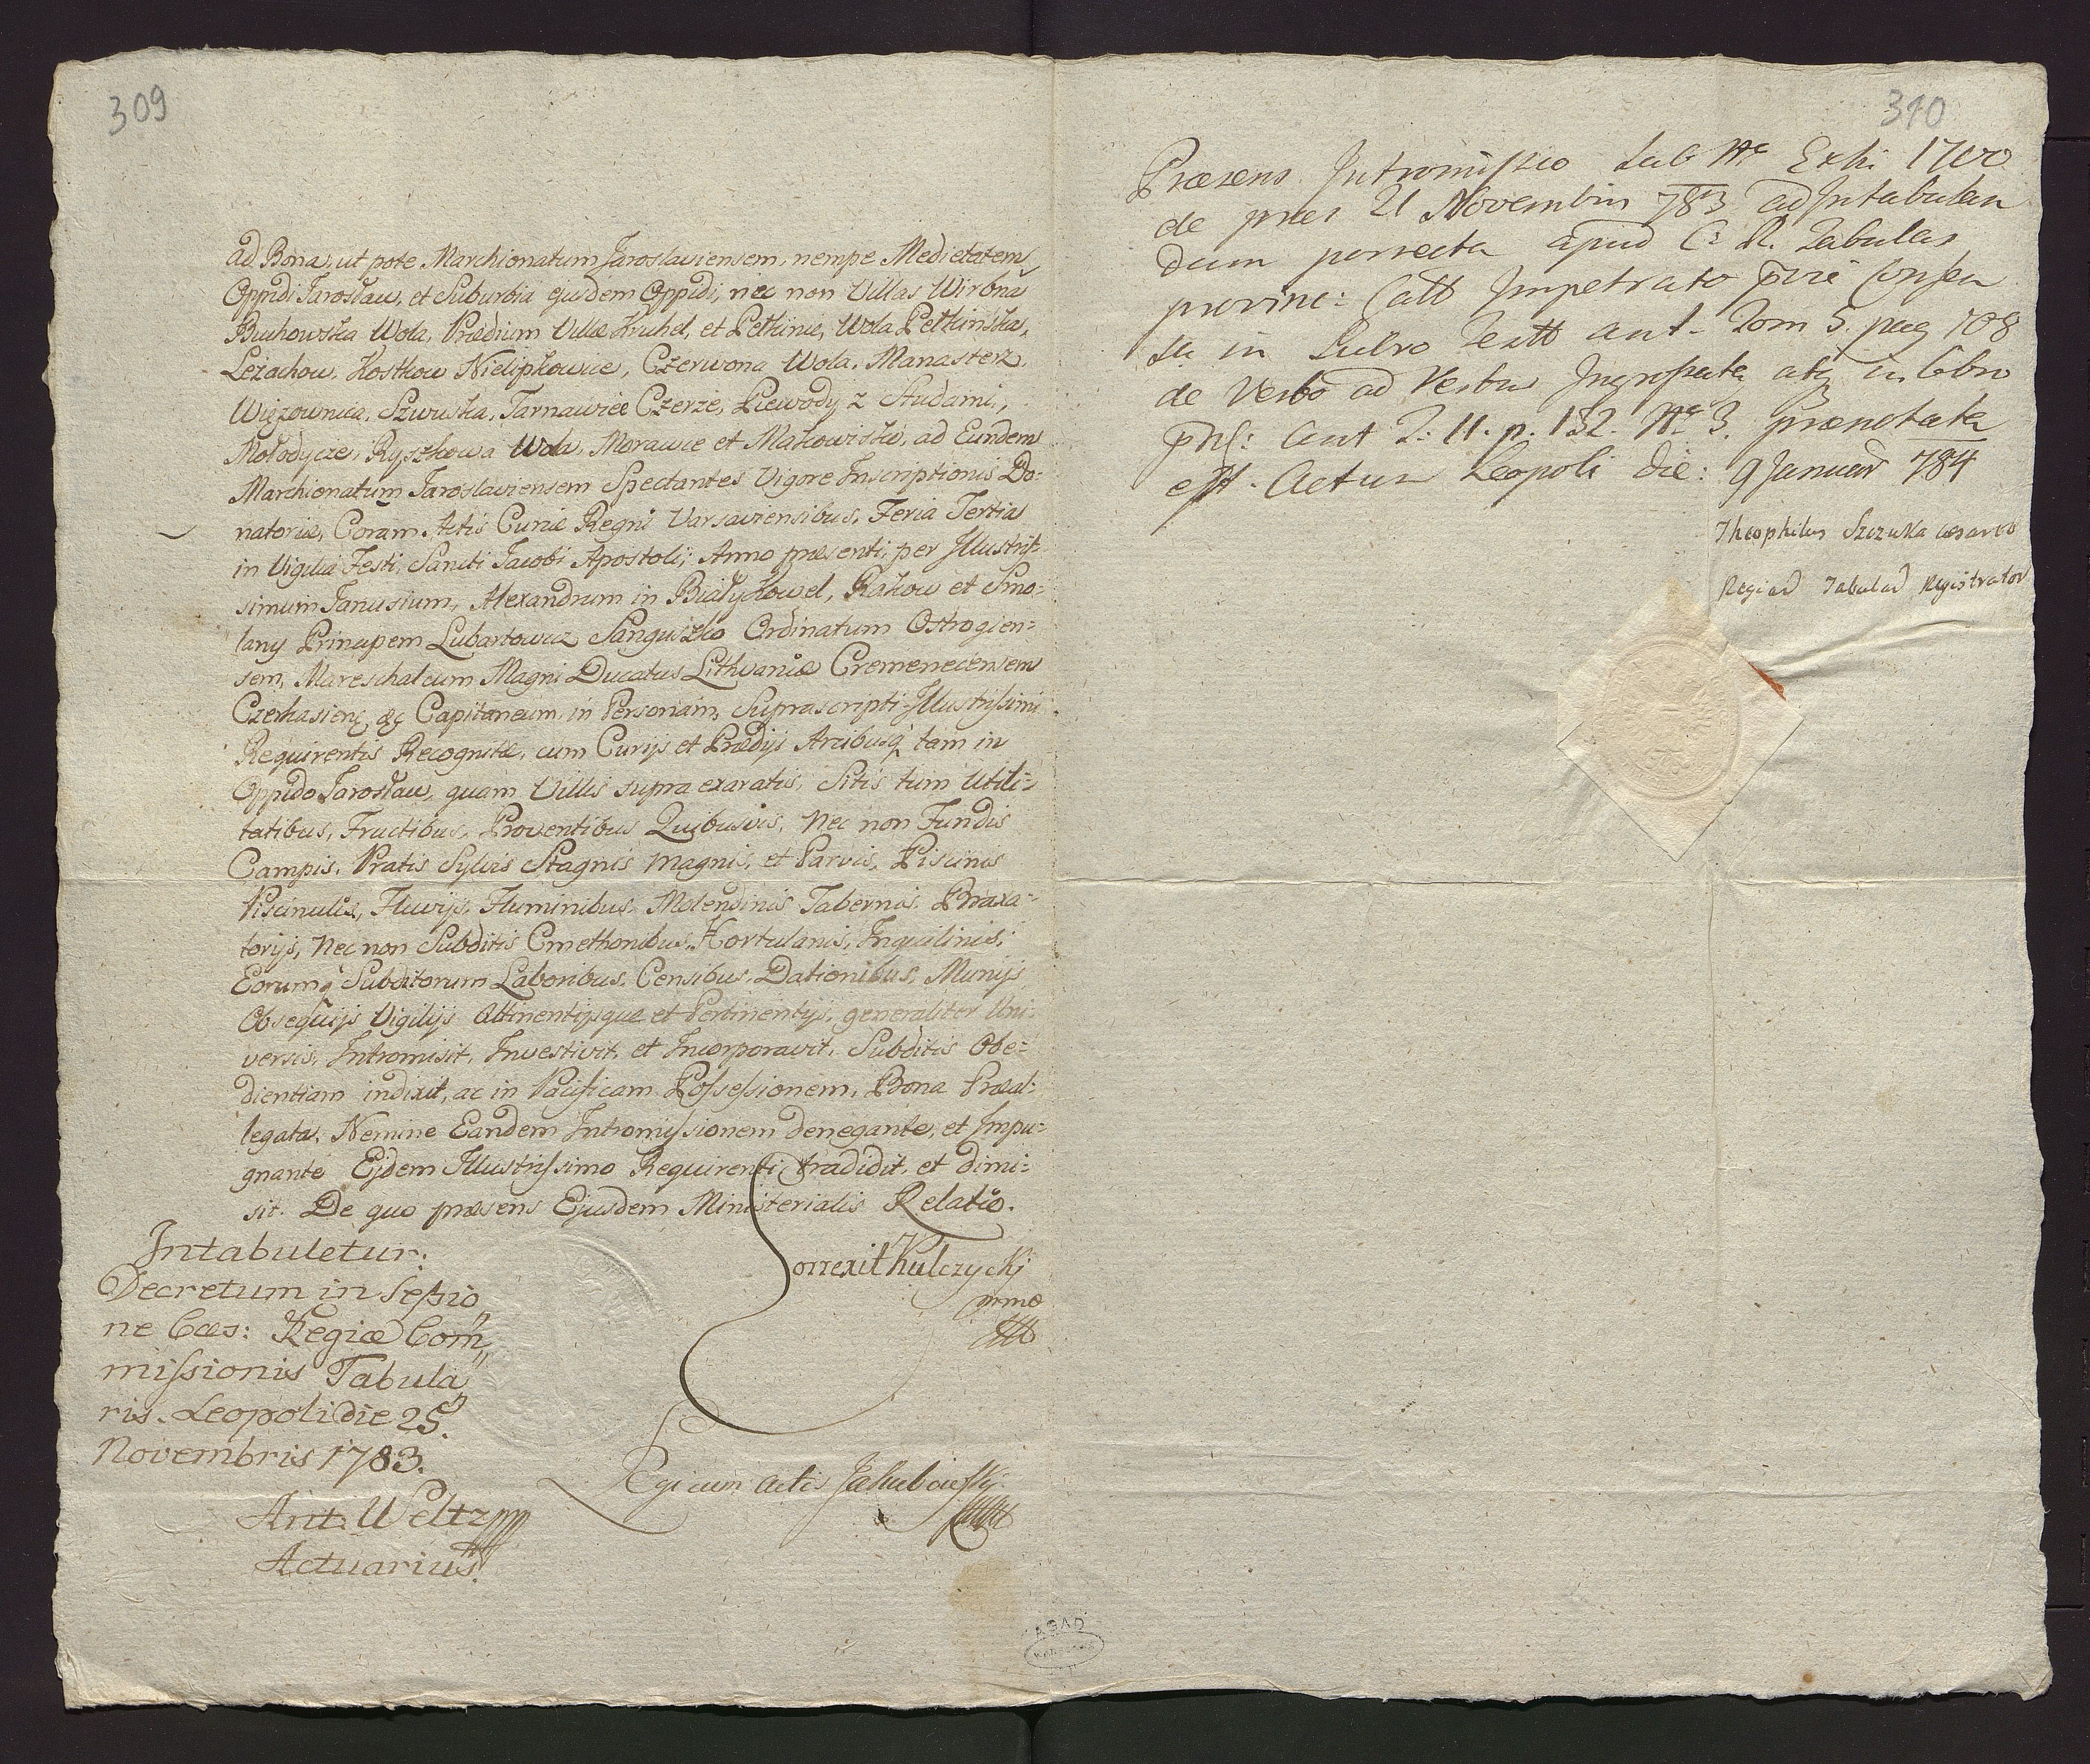 309
ad Bona, ut pote Marchionatum Jaroslaviensem, nempe Medietatem
Oppidi Jarosław, et Suburbia ejusdem Oppidi, nec non Villas Wirbna
Buhowska Wola, Prædium Villæ Kruhel, et Pełkinie, Wola Pełkinska,
Leżachow, Kostkow Nielipkowice, Czerwona Wola, Manasterz,
Wiązownica, Szwuska, Tarnawiec Czerze, Piewody z Studami,
Mołodycze, Ryszkowa Wola, Morawce et Makowisko, ad Eundem
Marchionatum Jaroslaviensem Spectantes Vigore Inscriptionis Do:
natoriæ, Coram Actis Curiæ Regni Varsaviensibus, Feria Tertia
in Vigilia Festi, Sancti Jacobi Apostoli; Anno præsenti, per Illustris:
simum Janusium, Alexandrum in Białykowel, Rakow et Smo:
lany Principem Lubartowicz Sanguszko Ordinatum Ostrogien:
sem, Mareschalcum Magni Ducatus Lithvaniæ Cremenecensem
Czerkasienę &ę Capitaneum, in Personam, Suprascripti Illustrissimi
Requirentis Recognitæ, cum Curijs et Prædijs Arcibusq tam in
Oppido Jarosław, quam Villis supra exaratis, Sitis tum Utili:
tatibus, Fructibus, Proventibus Quibusvis, Nec non Fundis
Campis, Pratis Sylvis Stagnis magnis, et Parvis, Piscinis
Piscinulis, Fluvijs, Fluminibus, Molendinis Tabernis, Braxa:
torijs, Nec non Subditis Cmethonibus, Hortulanis, Inquilinis,
Eorumq Subditorum Laboribus, Censibus, Dationibus, Munijs
Obsequijs Vigilijs Attinentijsque et Pertinentijs, generaliter Uni:
versis, Intromisit, Investivit, et Incorporavit, Subditis Obe:
dientiam indixit, ac in Pacificam Possessionem, Bona Præal:
legata, Nemine Eandem Intromissionem denegante, et Impu:
gnante Ejdem Illustrissimo Requirenti tradidit, et dimi:
sit. De quo præsens Ejusdem Ministerialis Relatio.
Correxit Kulczycki
mmo
Intabuletur:
Decretum in Sessio
ne Cæs: Regiæ Com
missionis Tabula
ris. Leopoli die 25.
Novembris 1783.
Ant. Weltz
Actuarius.
Legi cum Actis Jakubowski
AGAD
310
Præsens Intromissio sub Nro Exhi 1700
de præs 21 Novembris 783 ad Intabulan
dum porrecta apud C: R. Tabulas
provinc: Impetrato Consen
su in Libro ant. Tom 5. pag 108
de Verbo ad Verbum Ingrossata atq in Libro
ant T: 11. p. 132. No 3. prænotata
est. Actum Leopoli die: 9 Januar 784
Theophilus Szczuka Cæsareo
Regiad Tabulad Registrator